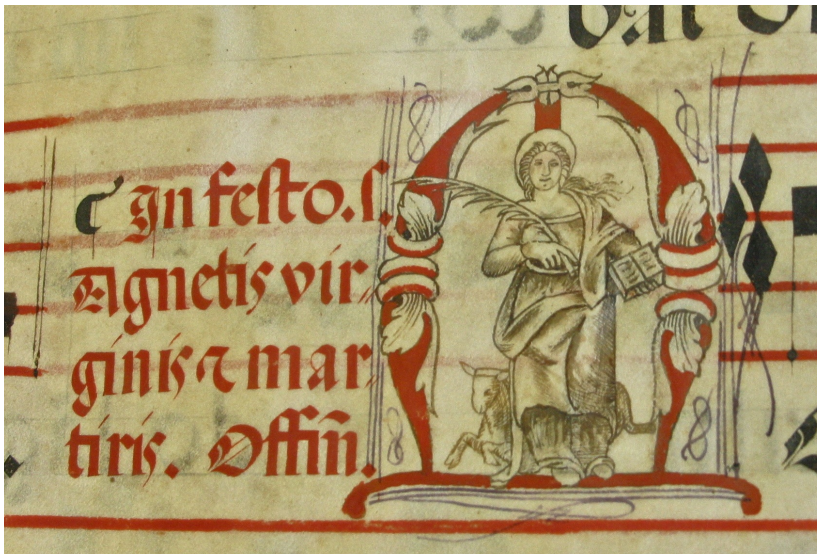 bat
¶ In festo. S.
Agnetis vir-
ginis ⁊ mar-
tiris. Offiñ.